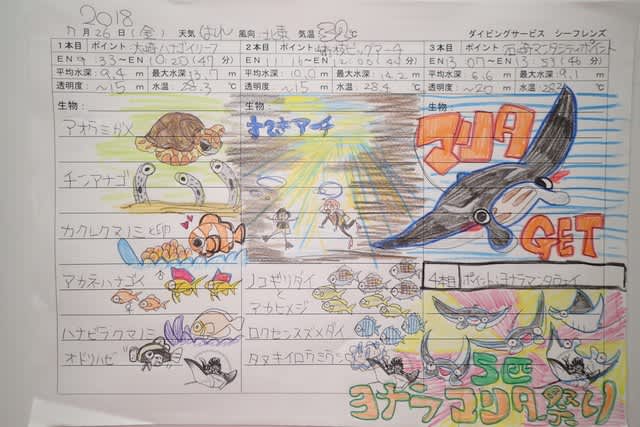 2018
7月26日(金) 天気 はれ 風向 北東 気温 32℃
ダイビングサービス シーフレンズ
1本目 ポイント:大崎ハナゴイリーフ
EN 9:33〜EX 10:20(47分)
平均水深:9.4m 最大水深:13.7m
透明度:〜15m 水温:28.3℃
生物:
アオウミガメ
チンアナゴ
カクレクマノミと卵
アカネハナゴイ
ハナビラクマノミ
オドリハゼ
2本目 ポイント:崎枝ビッグアーチ
平均水深:10.0m 最大水深:14.2m
透明度:〜15m 水温:28.4℃
生物:
さきえだアーチ
ノコギリダイ
と
アカヒメジ
ロクセンスズメダイ
3本目 ポイント:石崎マンタシティポイント
EN 13:07〜EX 13:53(46分)
平均水深:6.6m 最大水深:9.1m
透明度:〜20m 水温:
生物:
マンタ
GET
4本目 ポイント:ヨナラマンタウェイ
5匹
ヨナラマンタ祭り